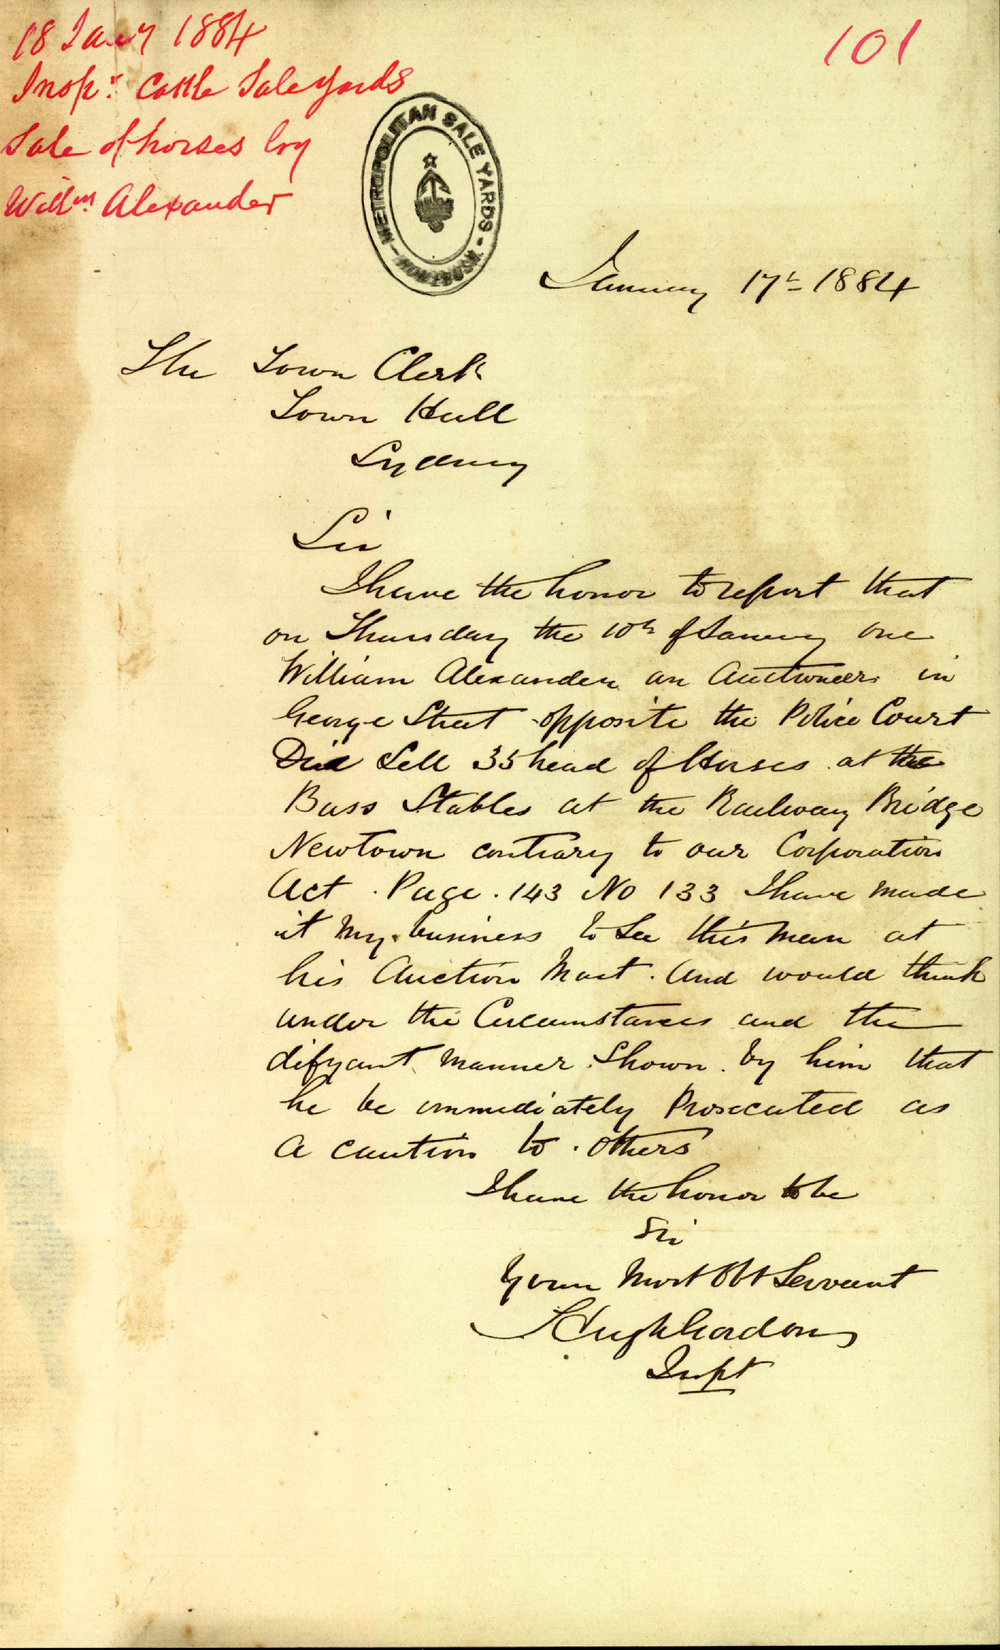 18 Jany 1884
Inspr. Cattle Sale Yards
Sale of horses by
Willm Alexander
101
METROPOLITAN SALE YARDS - HOMEBUSH -
January 17th 1884
The Town Clerk
Town Hall
Sydney
Sir
I have the honor to report that
on Thursday the 10th of January one
William Alexander an Auctioneer in
George Street opposite the Police Court
Did Sell 35 head of Horses at the
Buss Stables at the Railway Bridge
Newtown contrary to our Corporation
Act. Page. 143 No 133 I have made
it My business to See this man at
his Auction Mart. And would think
under the Circumstances and the
difyant manner Shown by him that
he be immediately Prosecuted as
a caution to others
I have the honor to be
Sir
Your Most Obt Servant
Hugh
Inspt